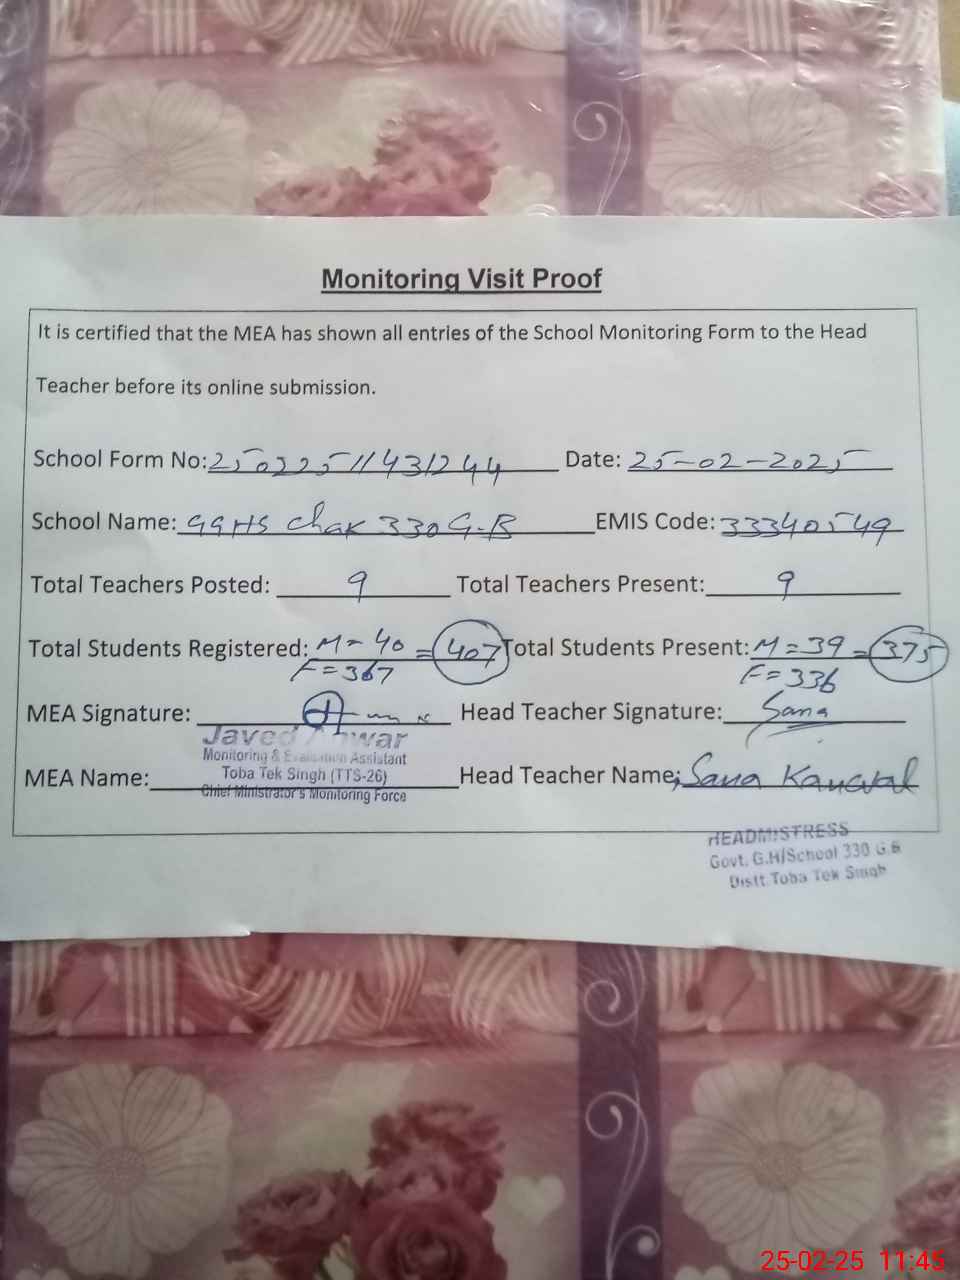 Monitoring Visit Proof
It is certified that the MEA has shown all entries of the School Monitoring Form to the Head
Teacher before its online submission.
School Form No: 25022511431244 Date: 25-02-2025
School Name: GGHS Chak 330 G-B EMIS Code: 33340549
Total Teachers Posted: 9 Total Teachers Present: 9
Total Students Registered: M=40 = 407 Total Students Present: M=39 = 375
F=367 F=336
MEA Signature: Head Teacher Signature: Sana
Javed Anwar
Monitoring & Evaluation Assistant
Toba Tek Singh (TTS-26)
MEA Name: Head Teacher Name: Sana Kanwal
Chief Minister's Monitoring Force
HEADMISTRESS
Govt. G.H/School 330 G.B
Distt Toba Tek Singh
25-02-25 11:45